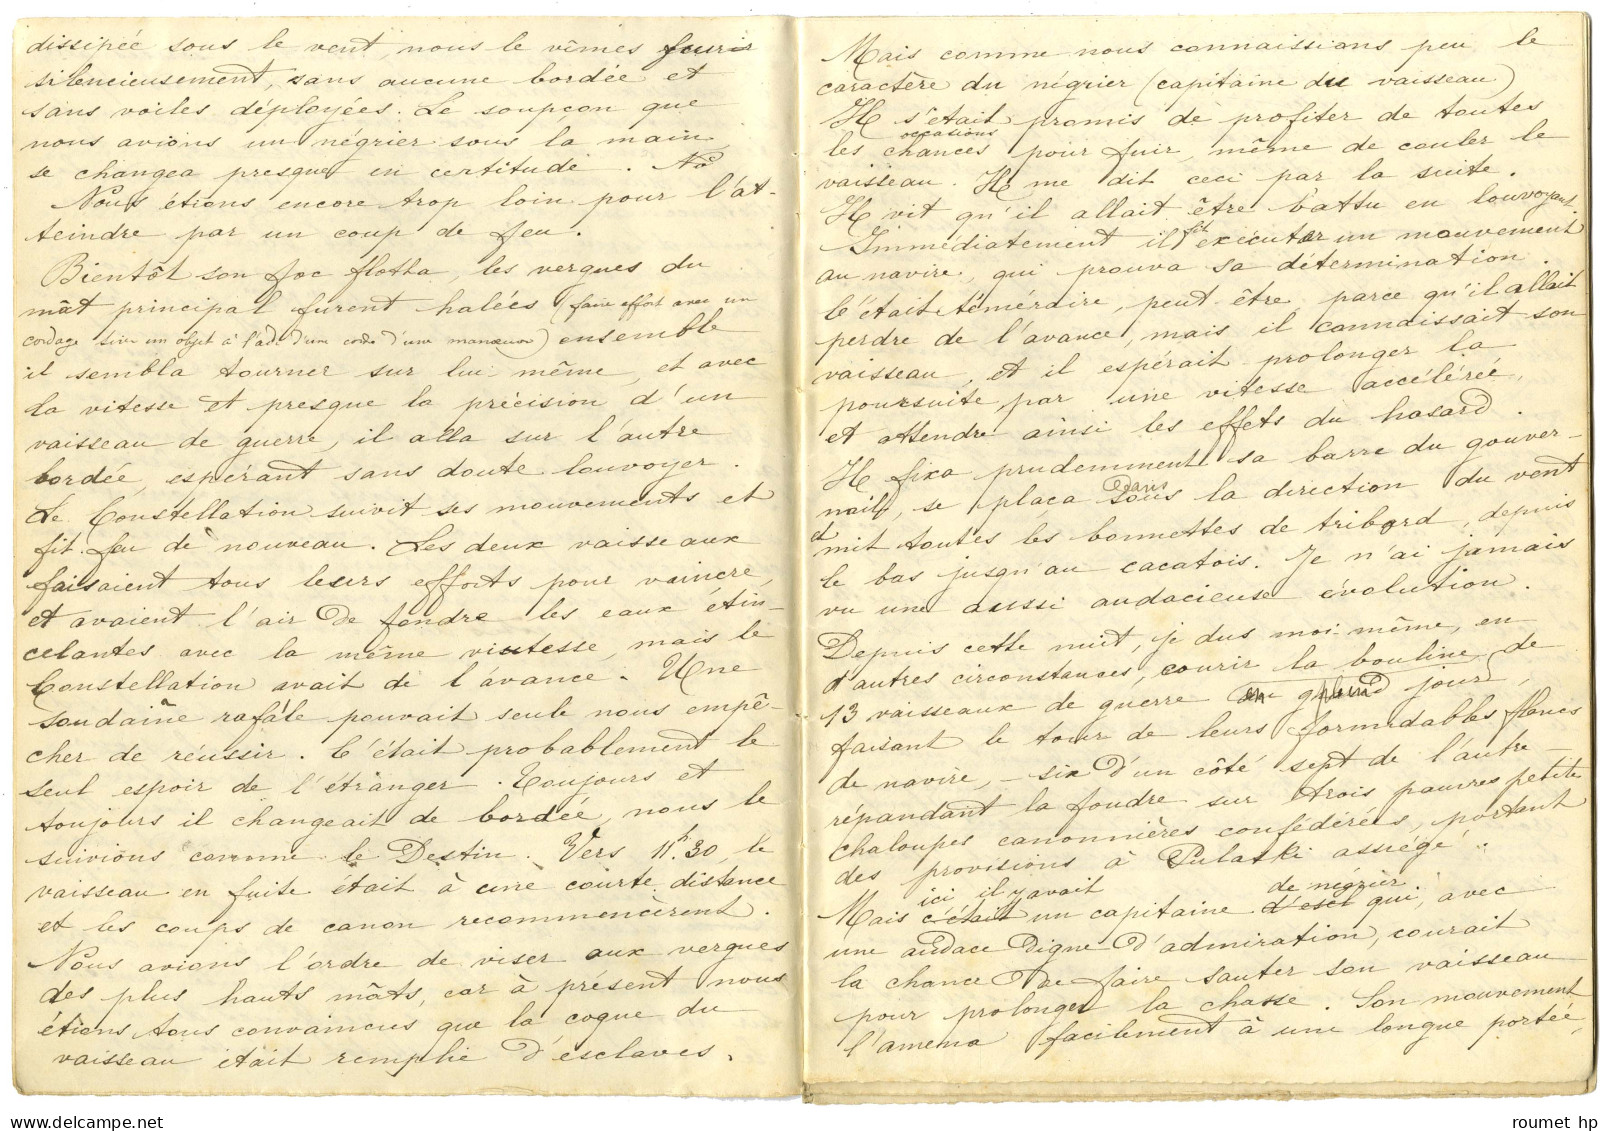 dissipée sous le vent, nous le vîmes fuir
silencieusement, sans aucune bordée et
sans voiles déployées. Le soupçon que
nous avions un négrier sous la main,
se changea presque en certitude. No
Nous étions encore trop loin pour l'at-
teindre par un coup de feu.
Bientôt son foc flotta, les vergues du
mât principal furent halées (faire effort avec un
cordage tirer un objet à l'aide d'une corde d'une manœuvre) ensemble
il sembla tourner sur lui même, et avec
la vitesse et presque la précision d'un
vaisseau de guerre, il alla sur l'autre
bordée, espérant sans doute louvoyer.
Le Constellation suivit ses mouvements et
fit feu de nouveau. Les deux vaisseaux
faisaient tous leurs efforts pour vaincre,
et avaient l'air de fendre les eaux étin-
celantes avec la même vitesse, mais le
Constellation avait de l'avance. Une
soudaine rafale pouvait seule nous empê-
cher de réussir. C'était probablement le
seul espoir de l'étranger. Toujours et
toujours il changeait de bordée, nous le
suivions comme le Destin. Vers 11h.30, le
vaisseau en fuite était à une courte distance
et les coups de canon recommencèrent.
Nous avions l'ordre de viser aux vergues
des plus hauts mâts, car à présent nous
étions tous convaincus que la coque du
vaisseau était remplie d'esclaves.
Mais comme nous connaissions peu le
caractère du négrier (capitaine du vaisseau)
Il s'était promis de profiter de toutes
occasions
les chances pour fuir, même de couler le
vaisseau. Il me dit ceci par la suite.
Il vit qu'il allait être battu en louvoyant.
Immédiatement il fit exécuter un mouvement
au navire, qui prouva sa détermination.
C'était téméraire, peut être, parce qu'il allait
perdre de l'avance, mais il connaissait son
vaisseau, et il espérait prolonger la
poursuite, par une vitesse accélérée,
et attendre ainsi les effets du hasard.
Il fixa prudemment sa barre du gouver-
dans
nail, se plaça sous la direction du vent
et mit toutes les bonnettes de tribord, depuis
le bas jusqu'au cacatois. Je n'ai jamais
vu une aussi audacieuse évolution.
Depuis cette nuit, je dus moi-même, en
d'autres circonstances, courir la bouline de
13 vaisseaux de guerre en plein jour,
faisant le tour de leurs formidables flancs
de navire, - six d'un côté sept de l'autre -
répandant la foudre sur trois pauvres petites
chaloupes canonnières confédérées, portant
des provisions à Pulaski assiégé".
ici il y avait de négrier
Mais c'était un capitaine d'escl qui, avec
une audace digne d'admiration, courait
la chance de faire sauter son vaisseau
pour prolonger la chasse. Son mouvement
l'amena facilement à une longue portée,
www.delcampe.net
roumet hp